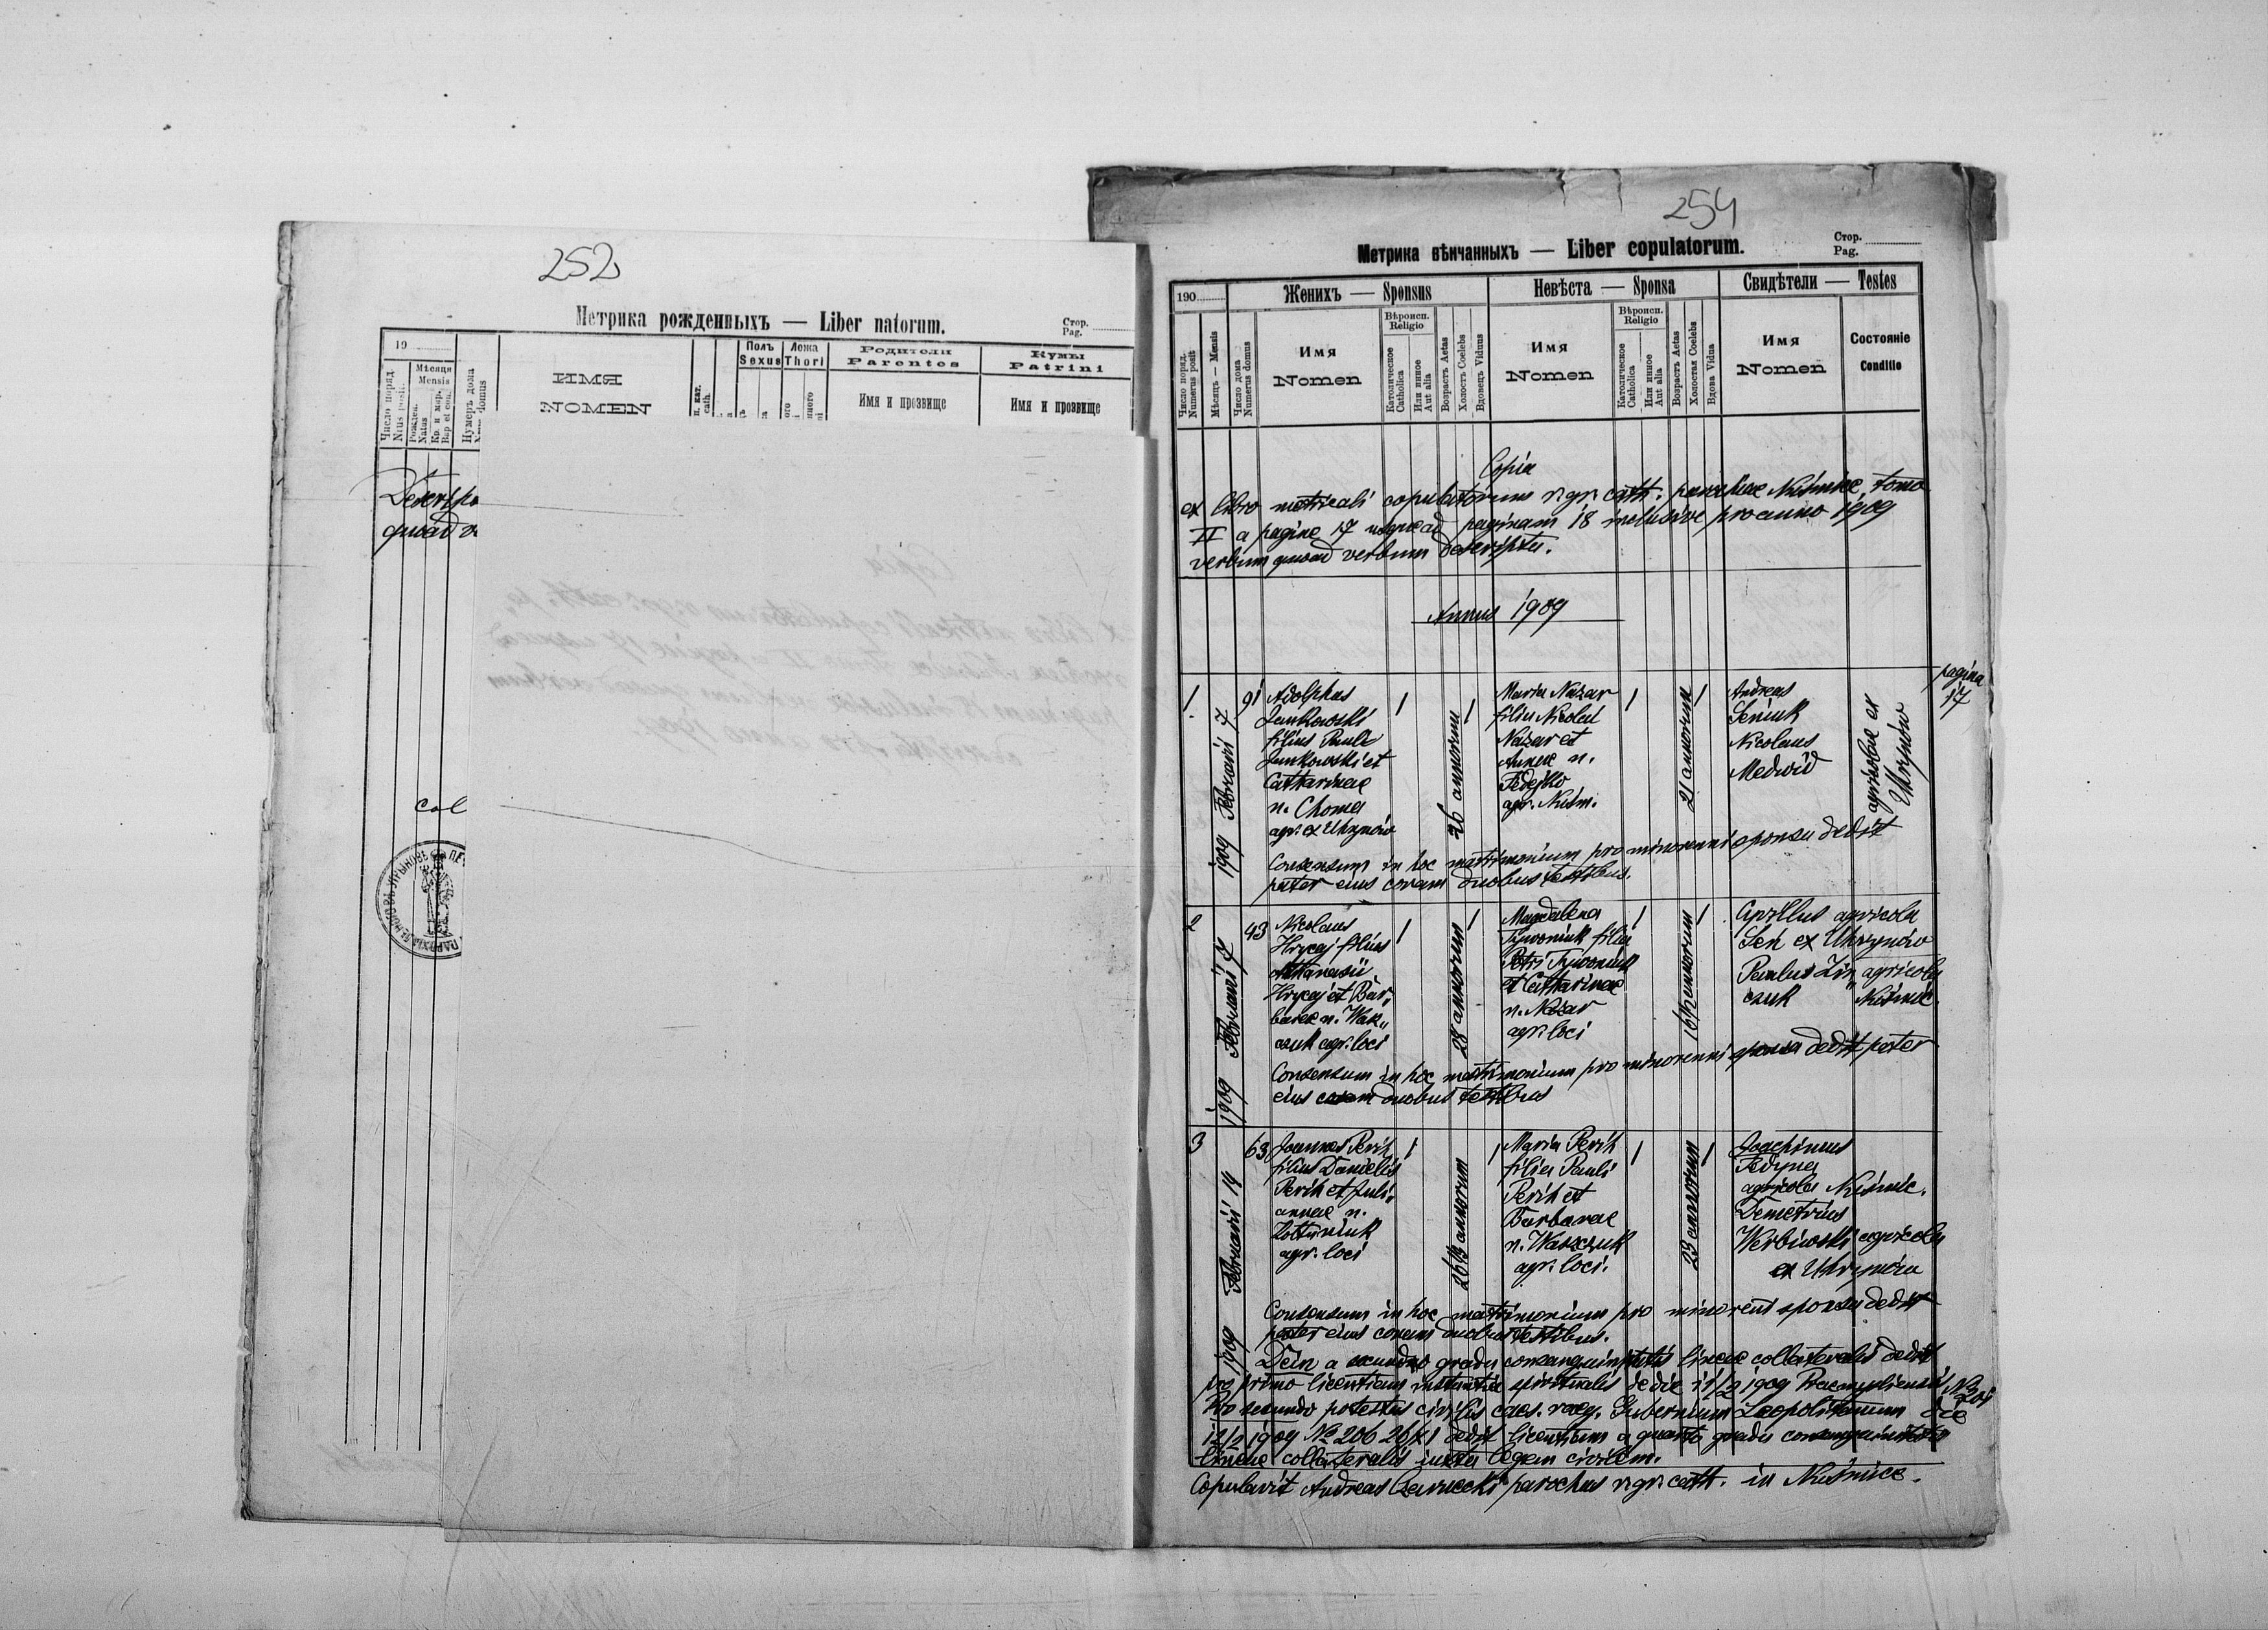 252
Метрика рожденныхъ — Liber natorum.
Стор.
Pag.
19
Число поряд.
Мѣсяця
Mensis
Рожден.
Natus
Кр. и мѵр.
Bap et con.
Нумеръ дома
domus
ИМЯ
NOMEN
п. кат.
cath.
Полъ
Sexus
Ложа
Thori
Родители
Parentes
Имя и прозвище
Кумы
Patrini
Имя и прозвище
quoad v
col
254
Метрика вѣнчанныхъ — Liber copulatorum.
Стор.
Pag.
190
Число поряд.
Numerus posit
Мѣсяцъ — Mensis
Число дома
Numerus domus
Женихъ — Sponsus
Имя
Nomen
Вѣроисп.
Religio
Католическое
Catholica
Или инное
Aut alia
Возрастъ Aetas
Холостъ Coelebs
Вдовецъ Viduus
Невѣста — Sponsa
Имя
Nomen
Вѣроисп.
Religio
Католическое
Catholica
Или инное
Aut alia
Возрастъ Aetas
Холостая Coelebs
Вдова Vidua
Свидѣтели — Testes
Имя
Nomen
Состояніе
Conditio
Copia
ex libro metricali copulatorum r. gr. cath. parochiae Nuśmice, tomo
II a pagine 17 usque ad paginam 18 inclusive pro anno 1909
verbum quoad verbum descripta.
Annus 1909
pagina
17
1.
1909 Februarii 7
91
Adolphus
Jankowski
filius Pauli
Jankowski et
Catharinae
n. Choma
agr. ex Uhrynów
26 annorum
Maria Nazar
filia Nicolai
Nazar et
Annae n.
Fedejko
agr. Nuśm.
21 annorum
Andreas
Seniuk
Nicolaus
Medwid
agricolae ex
Uhrynów
Consensum in hoc matrimonium pro minorenni sponsa dedit
pater eius coram duobus testibus.
2
1909 Februarii 7
43
Nicolaus
Hrycaj filius
Athanasii
Hrycaj et Bar„
barae n. Wasz„
czuk agr. loci
28 annorum
Magdalena
Tywoniuk filia
Petri Tywoniuk
et Catharinae
n. Nazar
agr. loci
annorum
Cyrillus agricola
Seń ex Uhrynów
Paulus Zin„ agricola
czuk Nuśmic.
Consensum in hoc matrimonium pro minorenni sponsa dedit pater
eius coram duobus testibus
3
1909 Februarii 14
63
Joannes Perih
filius Danielis
Perih et Juli„
annae n.
agr. loci
annorum
Maria Perih
filia Pauli
Perih et
Barbarae
n. Waszczuk
agr. loci.
23 annorum
Joachimus
Fedyna
agricola Nuśmic.
Demetrius
Werbiwski agricola
ex Uhrynów
Consensum in hoc matrimonium pro minoreni sponsa dedit
pater eius coram duobus testibus.
Dein a secundo gradu consanguinitatis lineae collateralis dedit
pro primo licentiam instantia spiritualis de die 11/2 1909 Praemysliensis №
Pro secundo potestas civilis caes. reg. Gubernium Leopolitanum die
12/2 1909 № dedit licentiam a quarto gradu consanguinitatis
lineae collateralis iuxta legem civilem.
Copulavit Andreas Czarnecki parochus r. gr. cath. in Nuśmice.